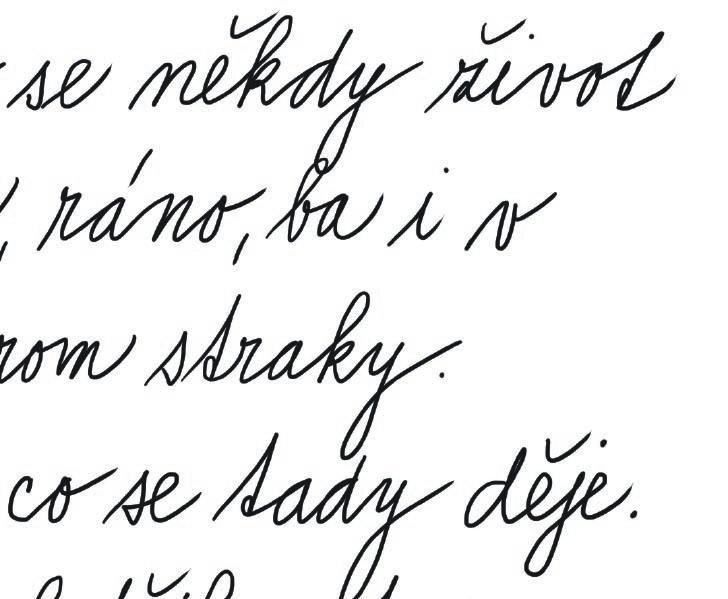 se někdy život
, ráno, ba i v
rom straky.
co se tady děje.